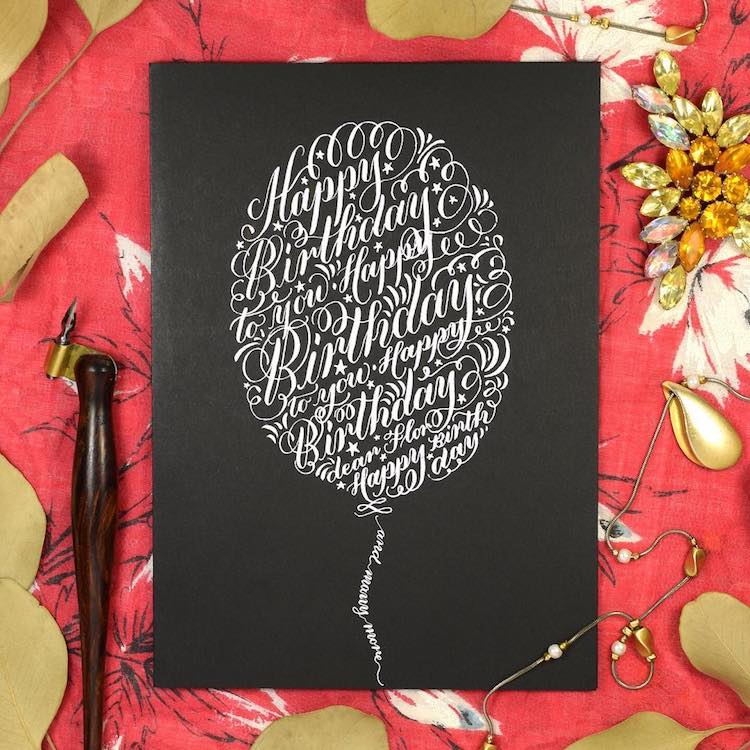 Happy
Birthday
to you Happy
Birthday
to you Happy
Birthday
dear Flor
Happy Birth
day
and many more